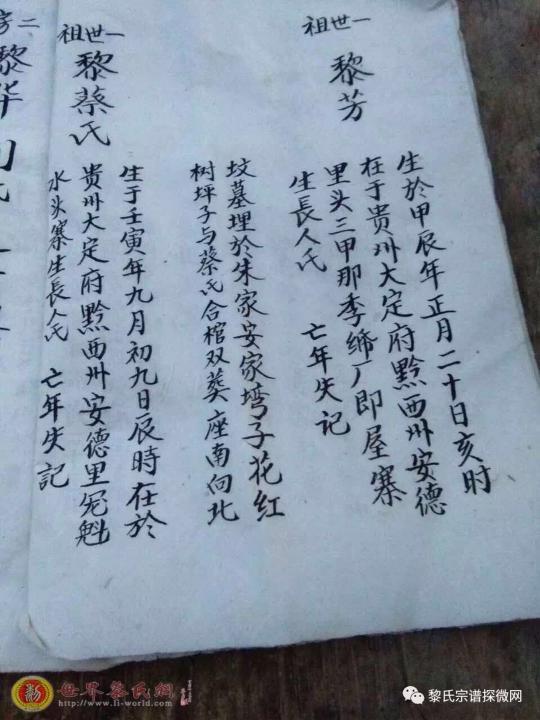 一世祖
黎芳
生於甲辰年正月二十日亥时
在于贵州大定府黔西州安德
里头三甲那季缔厂即屋寨
生長人氏 亡年失记
坟墓埋於朱家安家塆子花红
树坪子与蔡氏合棺双葬座南向北
一世祖
黎蔡氏
生于壬寅年九月初九日辰時在於
貴州大定府黔西州安德里宛魁
水头寨生長人氏 亡年失記
二
黎华
世界黎氏網
www.li-world.com
黎氏宗谱探微网